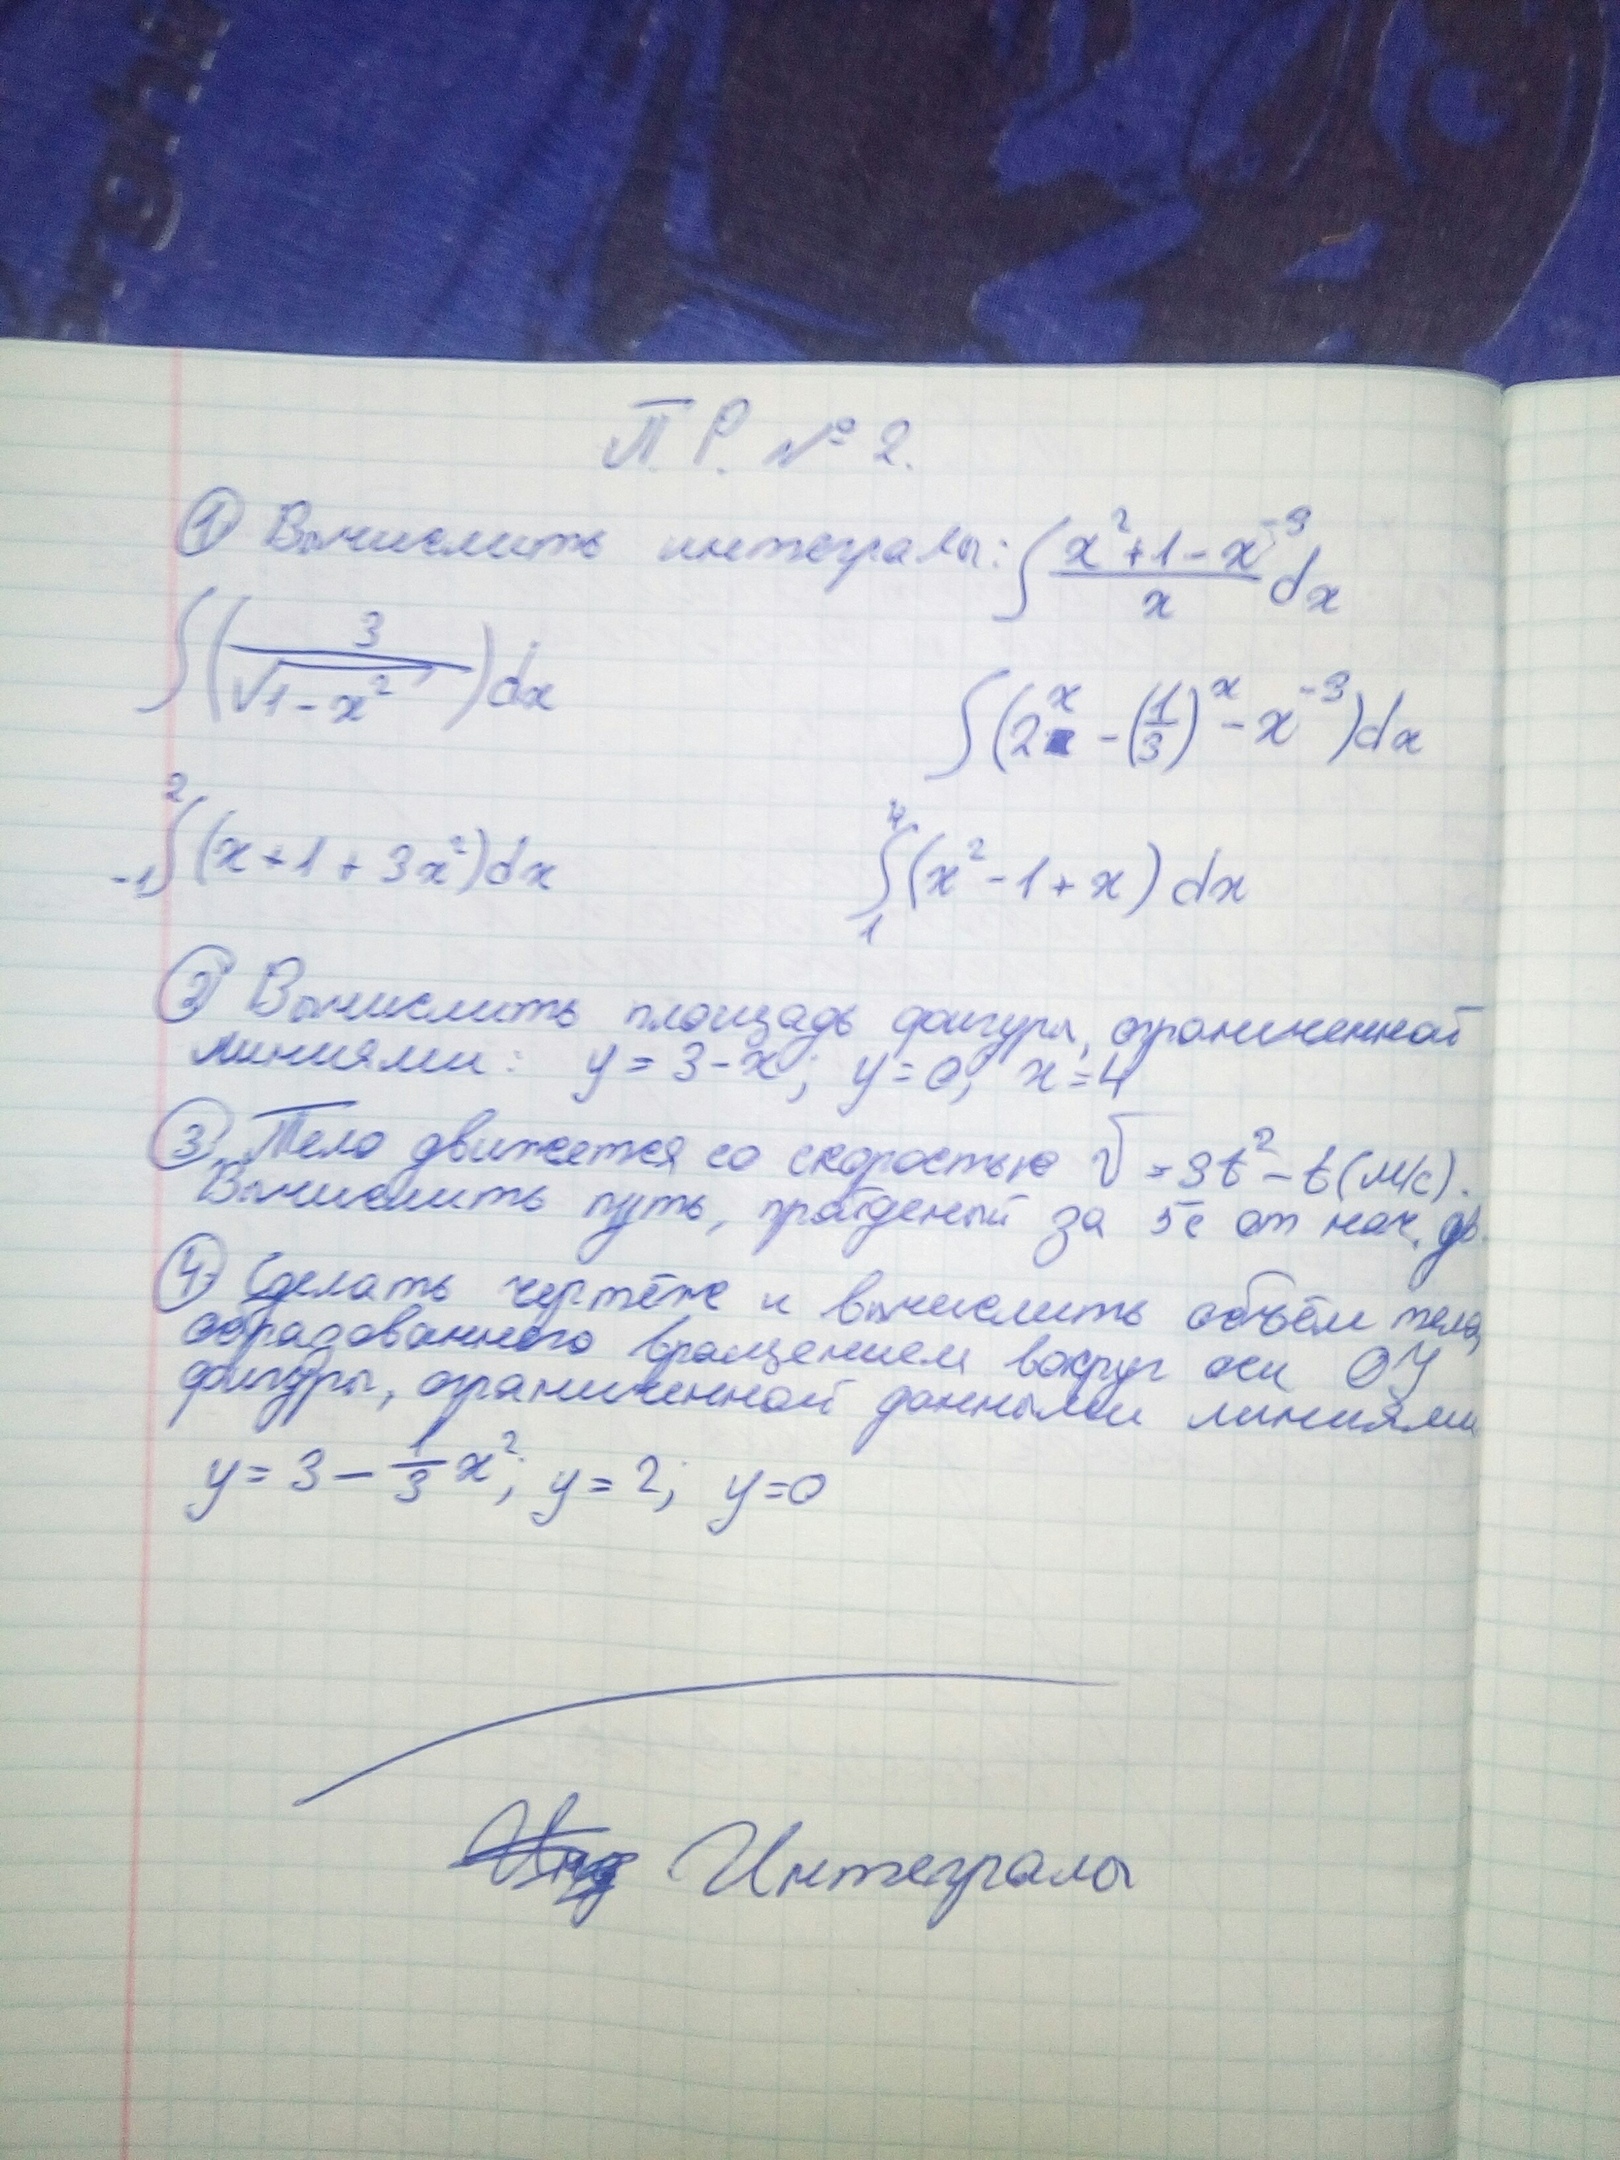 П.Р. № 2.
① Вычислить интегралы: ∫ (x² + 1 - x⁻³)/x dx
∫ (3/√(1 - x²)) dx
∫ (2ˣ - (1/3)ˣ - x⁻³) dx
₋₁∫² (x + 1 + 3x²) dx
₁∫⁴ (x² - 1 + x) dx
② Вычислить площадь фигуры, ограниченной
линиями: y = 3 - x; y = 0; x = 4
③ Тело движется со скоростью V = 3t² - t (м/с).
Вычислить путь, пройденый за 5с от нач. дв.
④ Сделать чертёж и вычислить объём тела,
образованного вращением вокруг оси OY
фигуры, ограниченной данными линиями
y = 3 - 1/3 x²; y = 2; y = 0
Интегралы